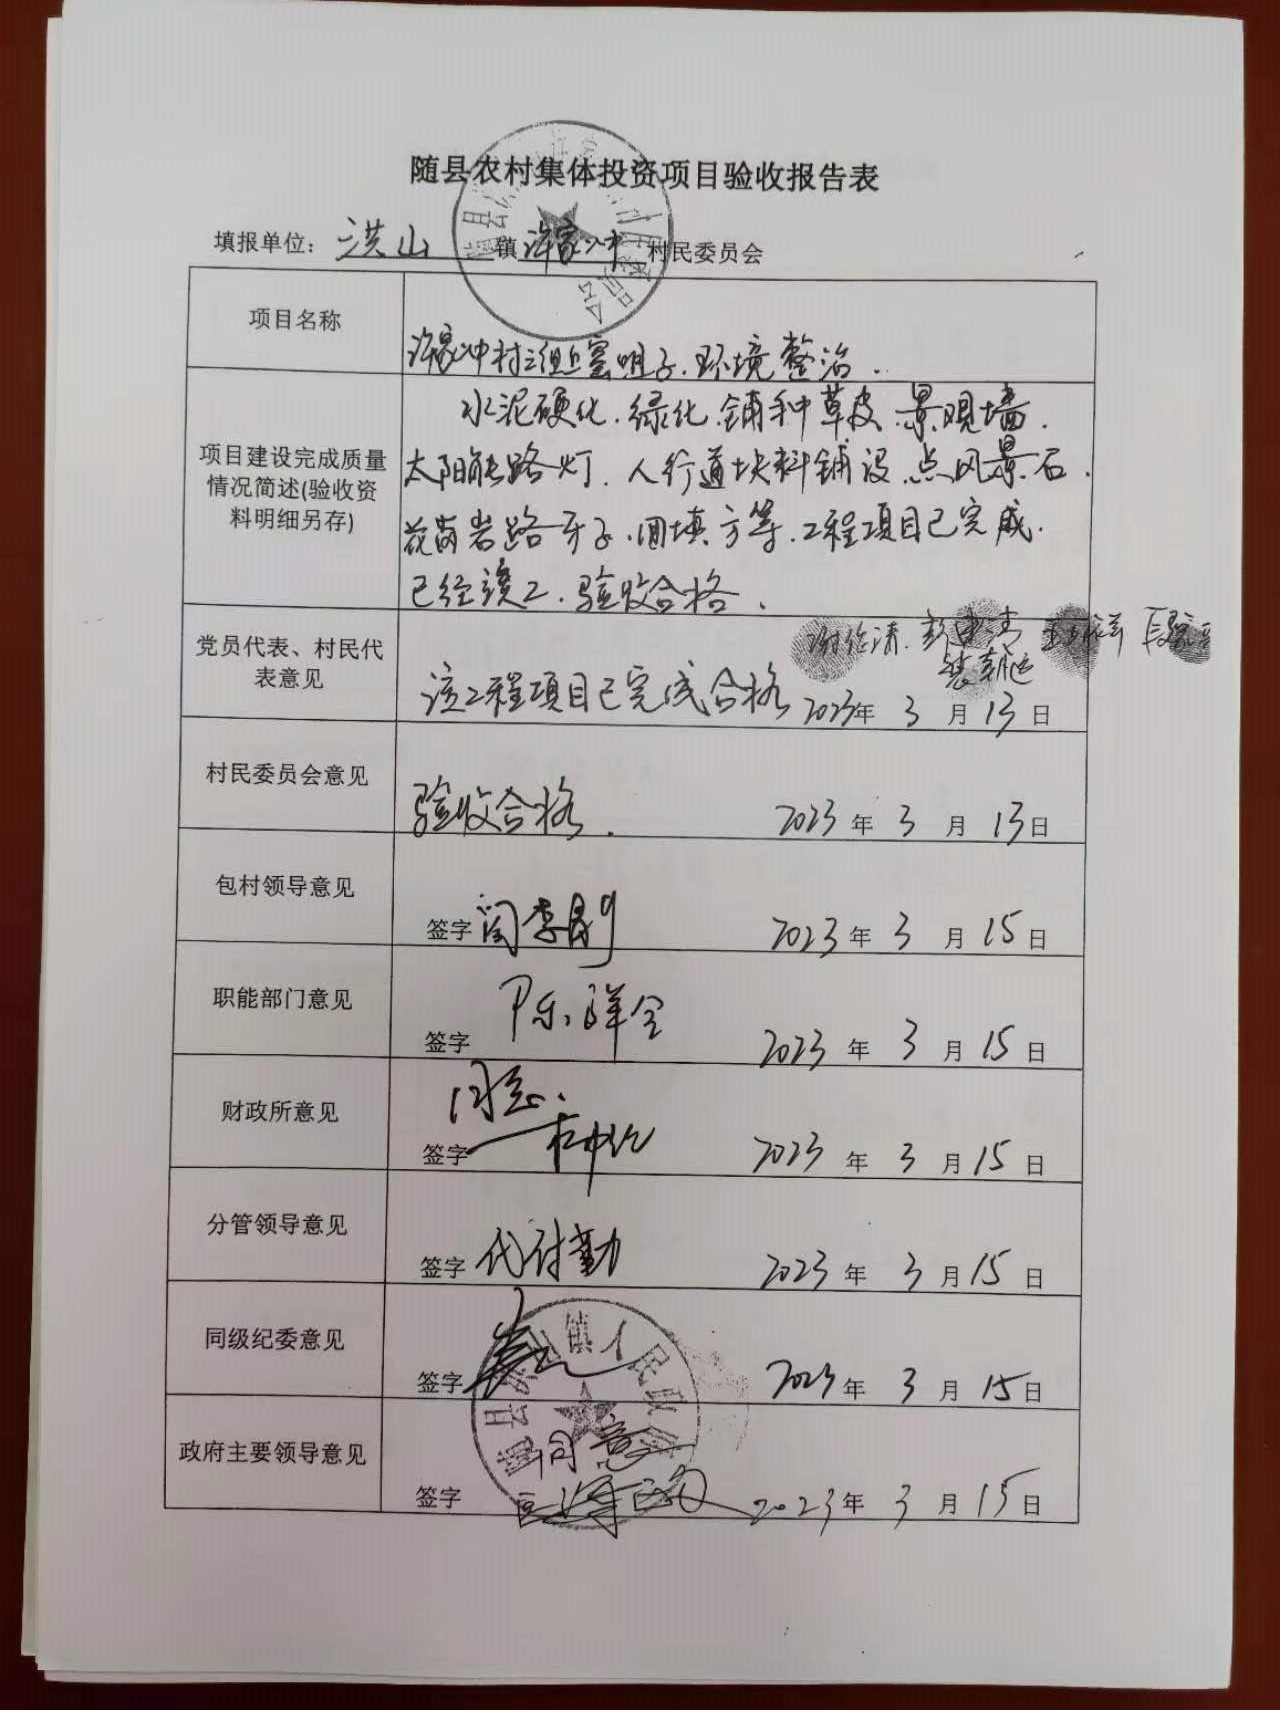 随县农村集体投资项目验收报告表
填报单位：洪山 镇 许家冲 村民委员会
项目名称
许家冲村三组上窑咀子.环境整治.
项目建设完成质量
情况简述(验收资
料明细另存)
水泥硬化.绿化.铺种草皮.景观墙.
太阳能路灯.人行道块料铺设.点风景石.
花岗岩路牙子.回填方等.工程项目已完成.
已经竣工.验收合格.
党员代表、村民代
表意见
该工程项目已完成合格 2023年 3 月 13 日
村民委员会意见
验收合格. 2023 年 3 月 13日
包村领导意见
签字 2023 年 3 月 15 日
职能部门意见
签字 2023 年 3 月 15 日
财政所意见
同意.
签字 2023 年 3 月 15 日
分管领导意见
签字 2023 年 3 月 15 日
同级纪委意见
签字 2023 年 3 月 15 日
镇人民政府
政府主要领导意见
同意
签字 2023 年 3 月 15 日